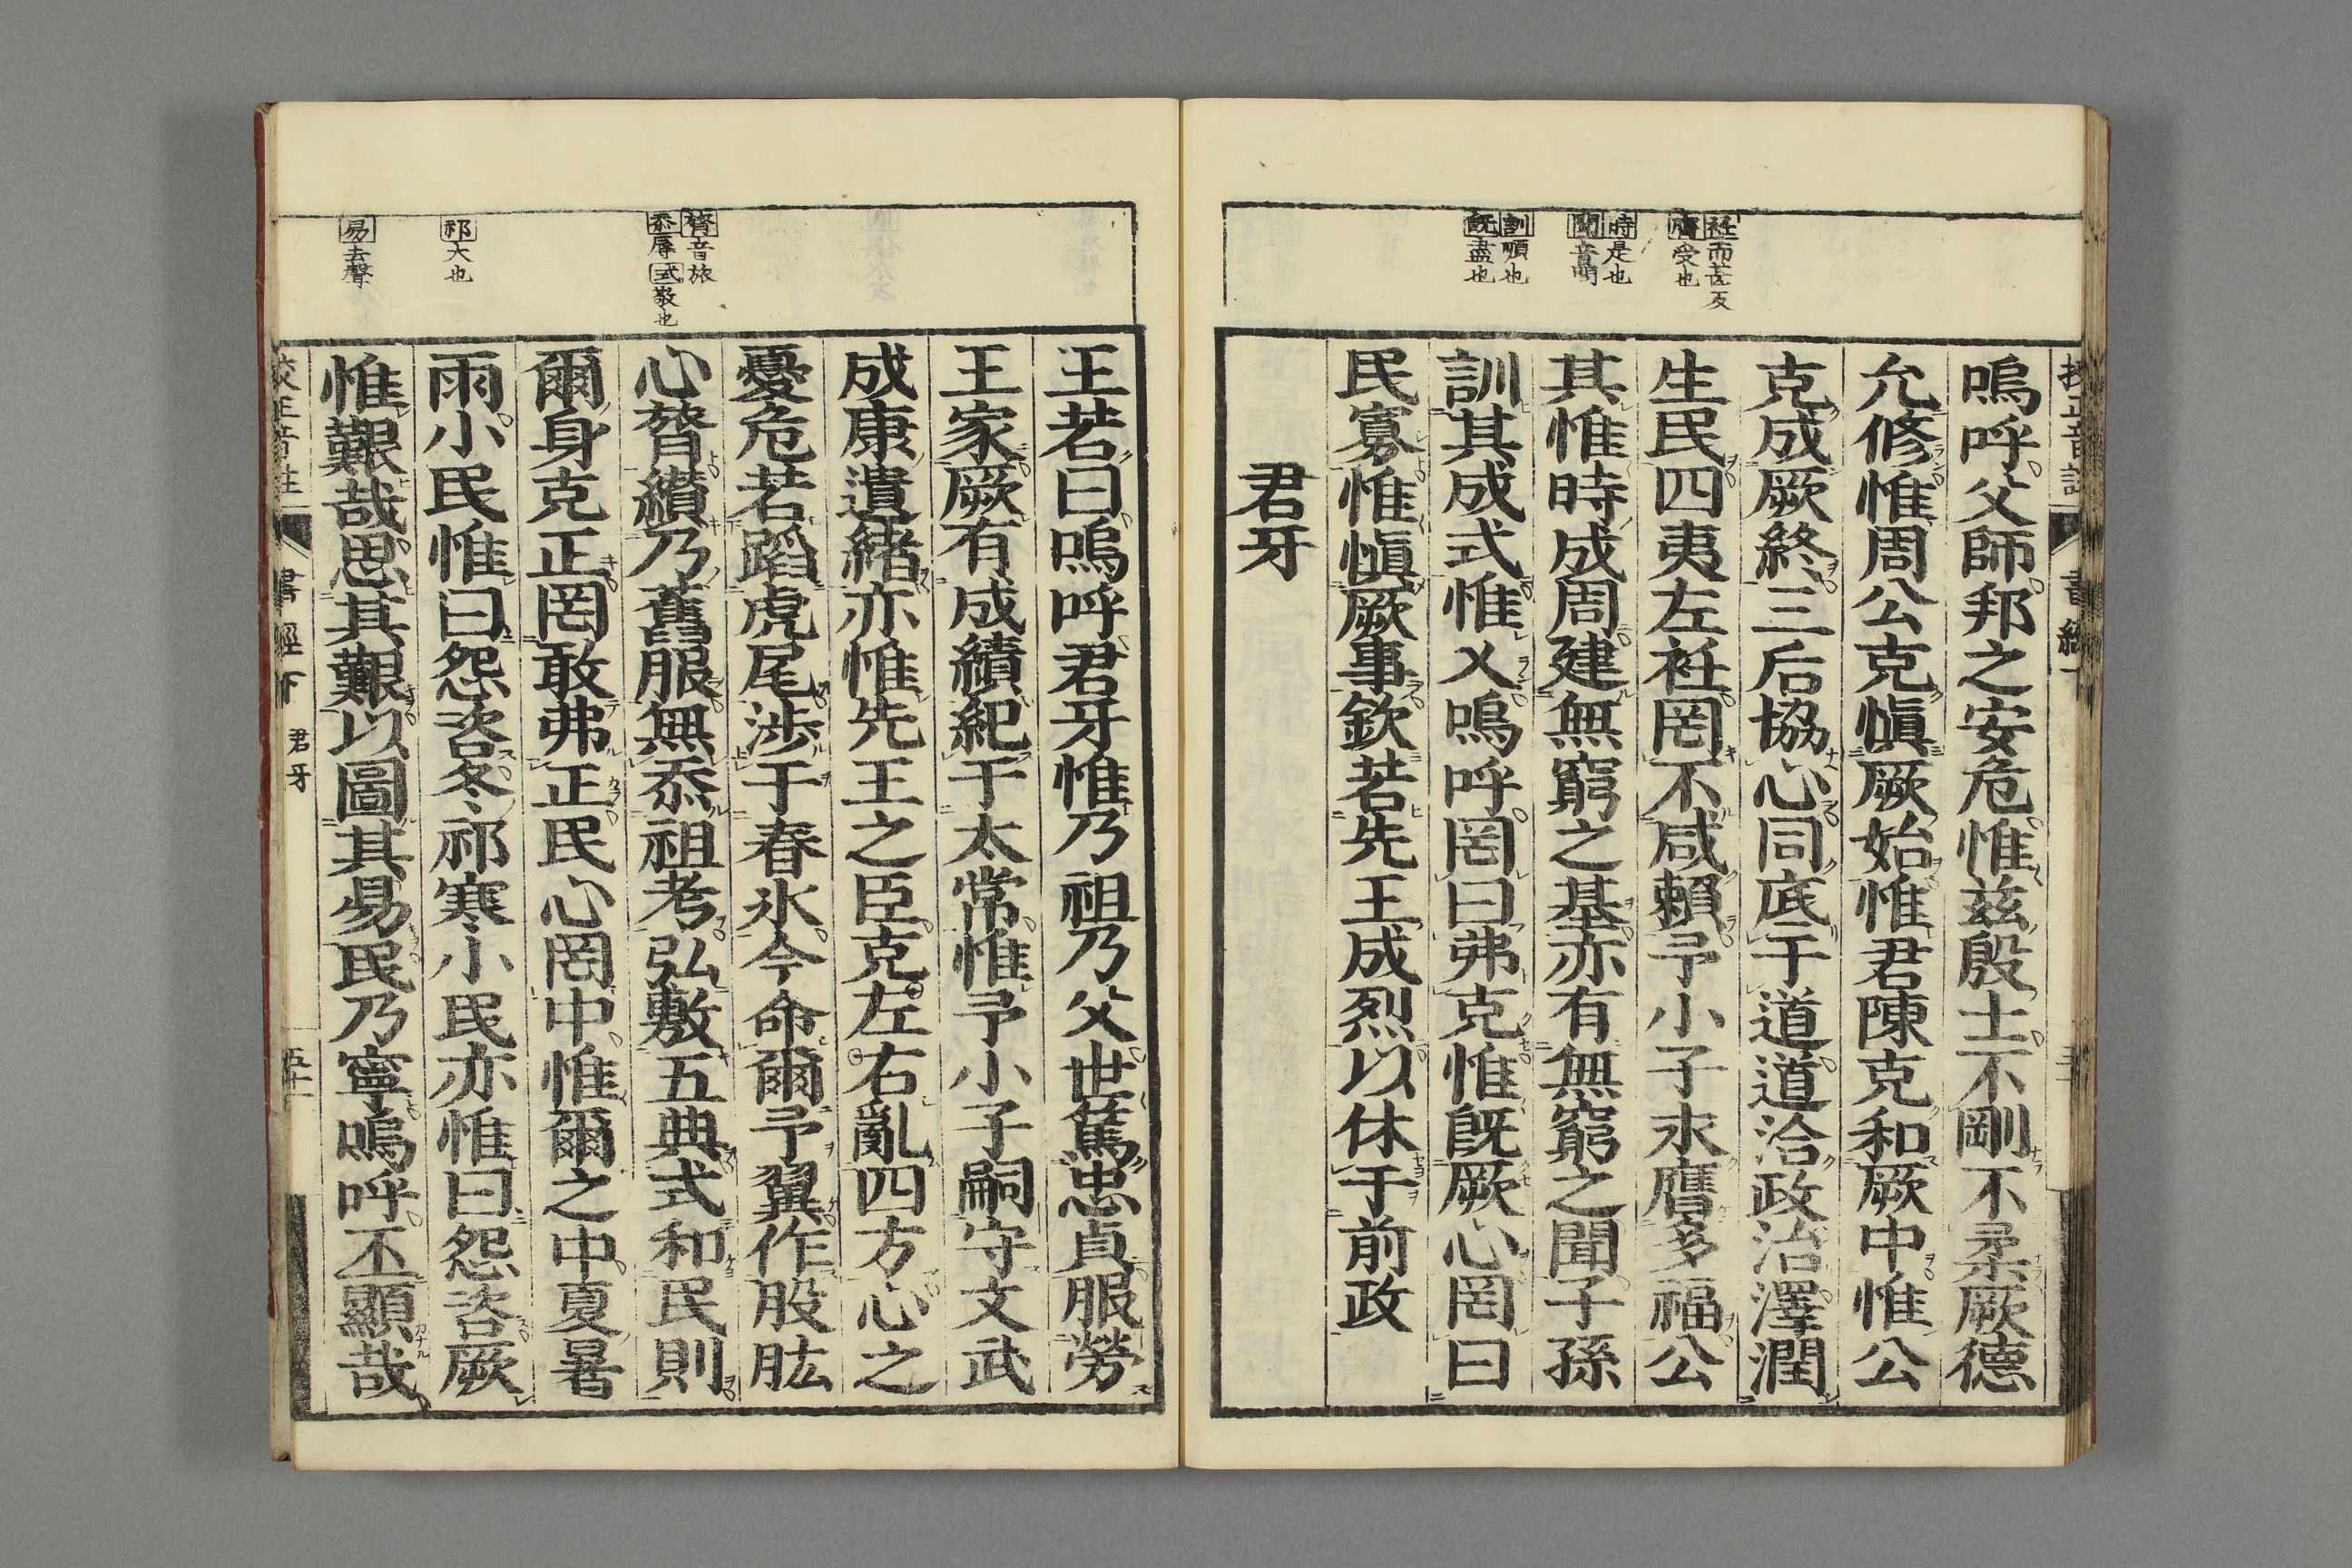 衽而甚反
膺受也
時是也
聞音問
訓順也
旣盡也
嗚呼父師邦之安危惟玆殷士不剛不柔厥德
允修惟周公克愼厥始惟君陳克和厥中惟公
克成厥終三后協心同底于道道洽政治澤潤
生民四夷左衽罔不咸賴予小子永膺多福公
其惟時成周建無窮之基亦有無窮之聞子孫
訓其成式惟乂嗚呼罔曰弗克惟旣厥心罔曰
民寡惟愼厥事欽若先王成烈以休于前政
君牙
膂音旅
忝辱式敬也
祁大也
易去聲
王若曰嗚呼君牙惟乃祖乃父世篤忠貞服勞
王家厥有成績紀于太常惟予小子嗣守文武
成康遺緒亦惟先王之臣克左右亂四方心之
憂危若蹈虎尾涉于春氷今命爾予翼作股肱
心膂纘乃舊服無忝祖考弘敷五典式和民則
爾身克正罔敢弗正民心罔中惟爾之中夏暑
雨小民惟曰怨咨冬祁寒小民亦惟曰怨咨厥
惟艱哉思其艱以圖其易民乃寧嗚呼丕顯哉
校正音註 書經下 君牙